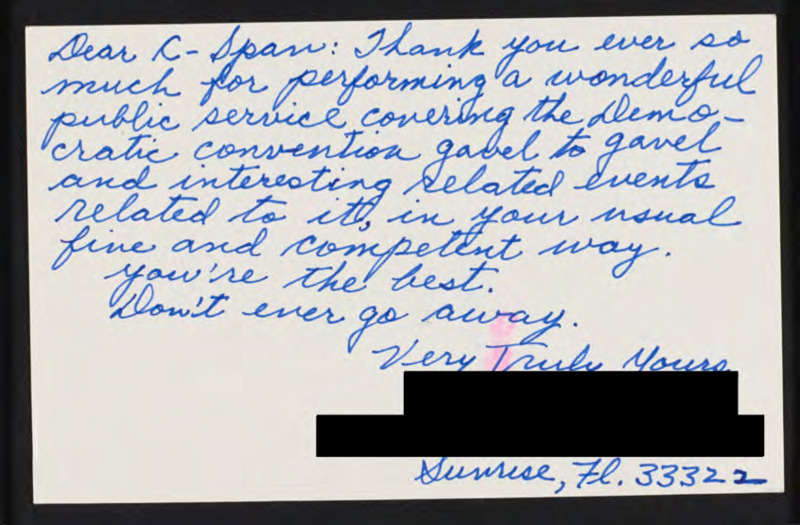 Dear C-Span: Thank you ever so
much for performing a wonderful
public service covering the Demo-
cratic convention gavel to gavel
and interesting related events
related to it, in your usual
fine and competent way.
you're the best.
Don't ever go away.
Very Truly Yours
Sunrise, Fl. 33322